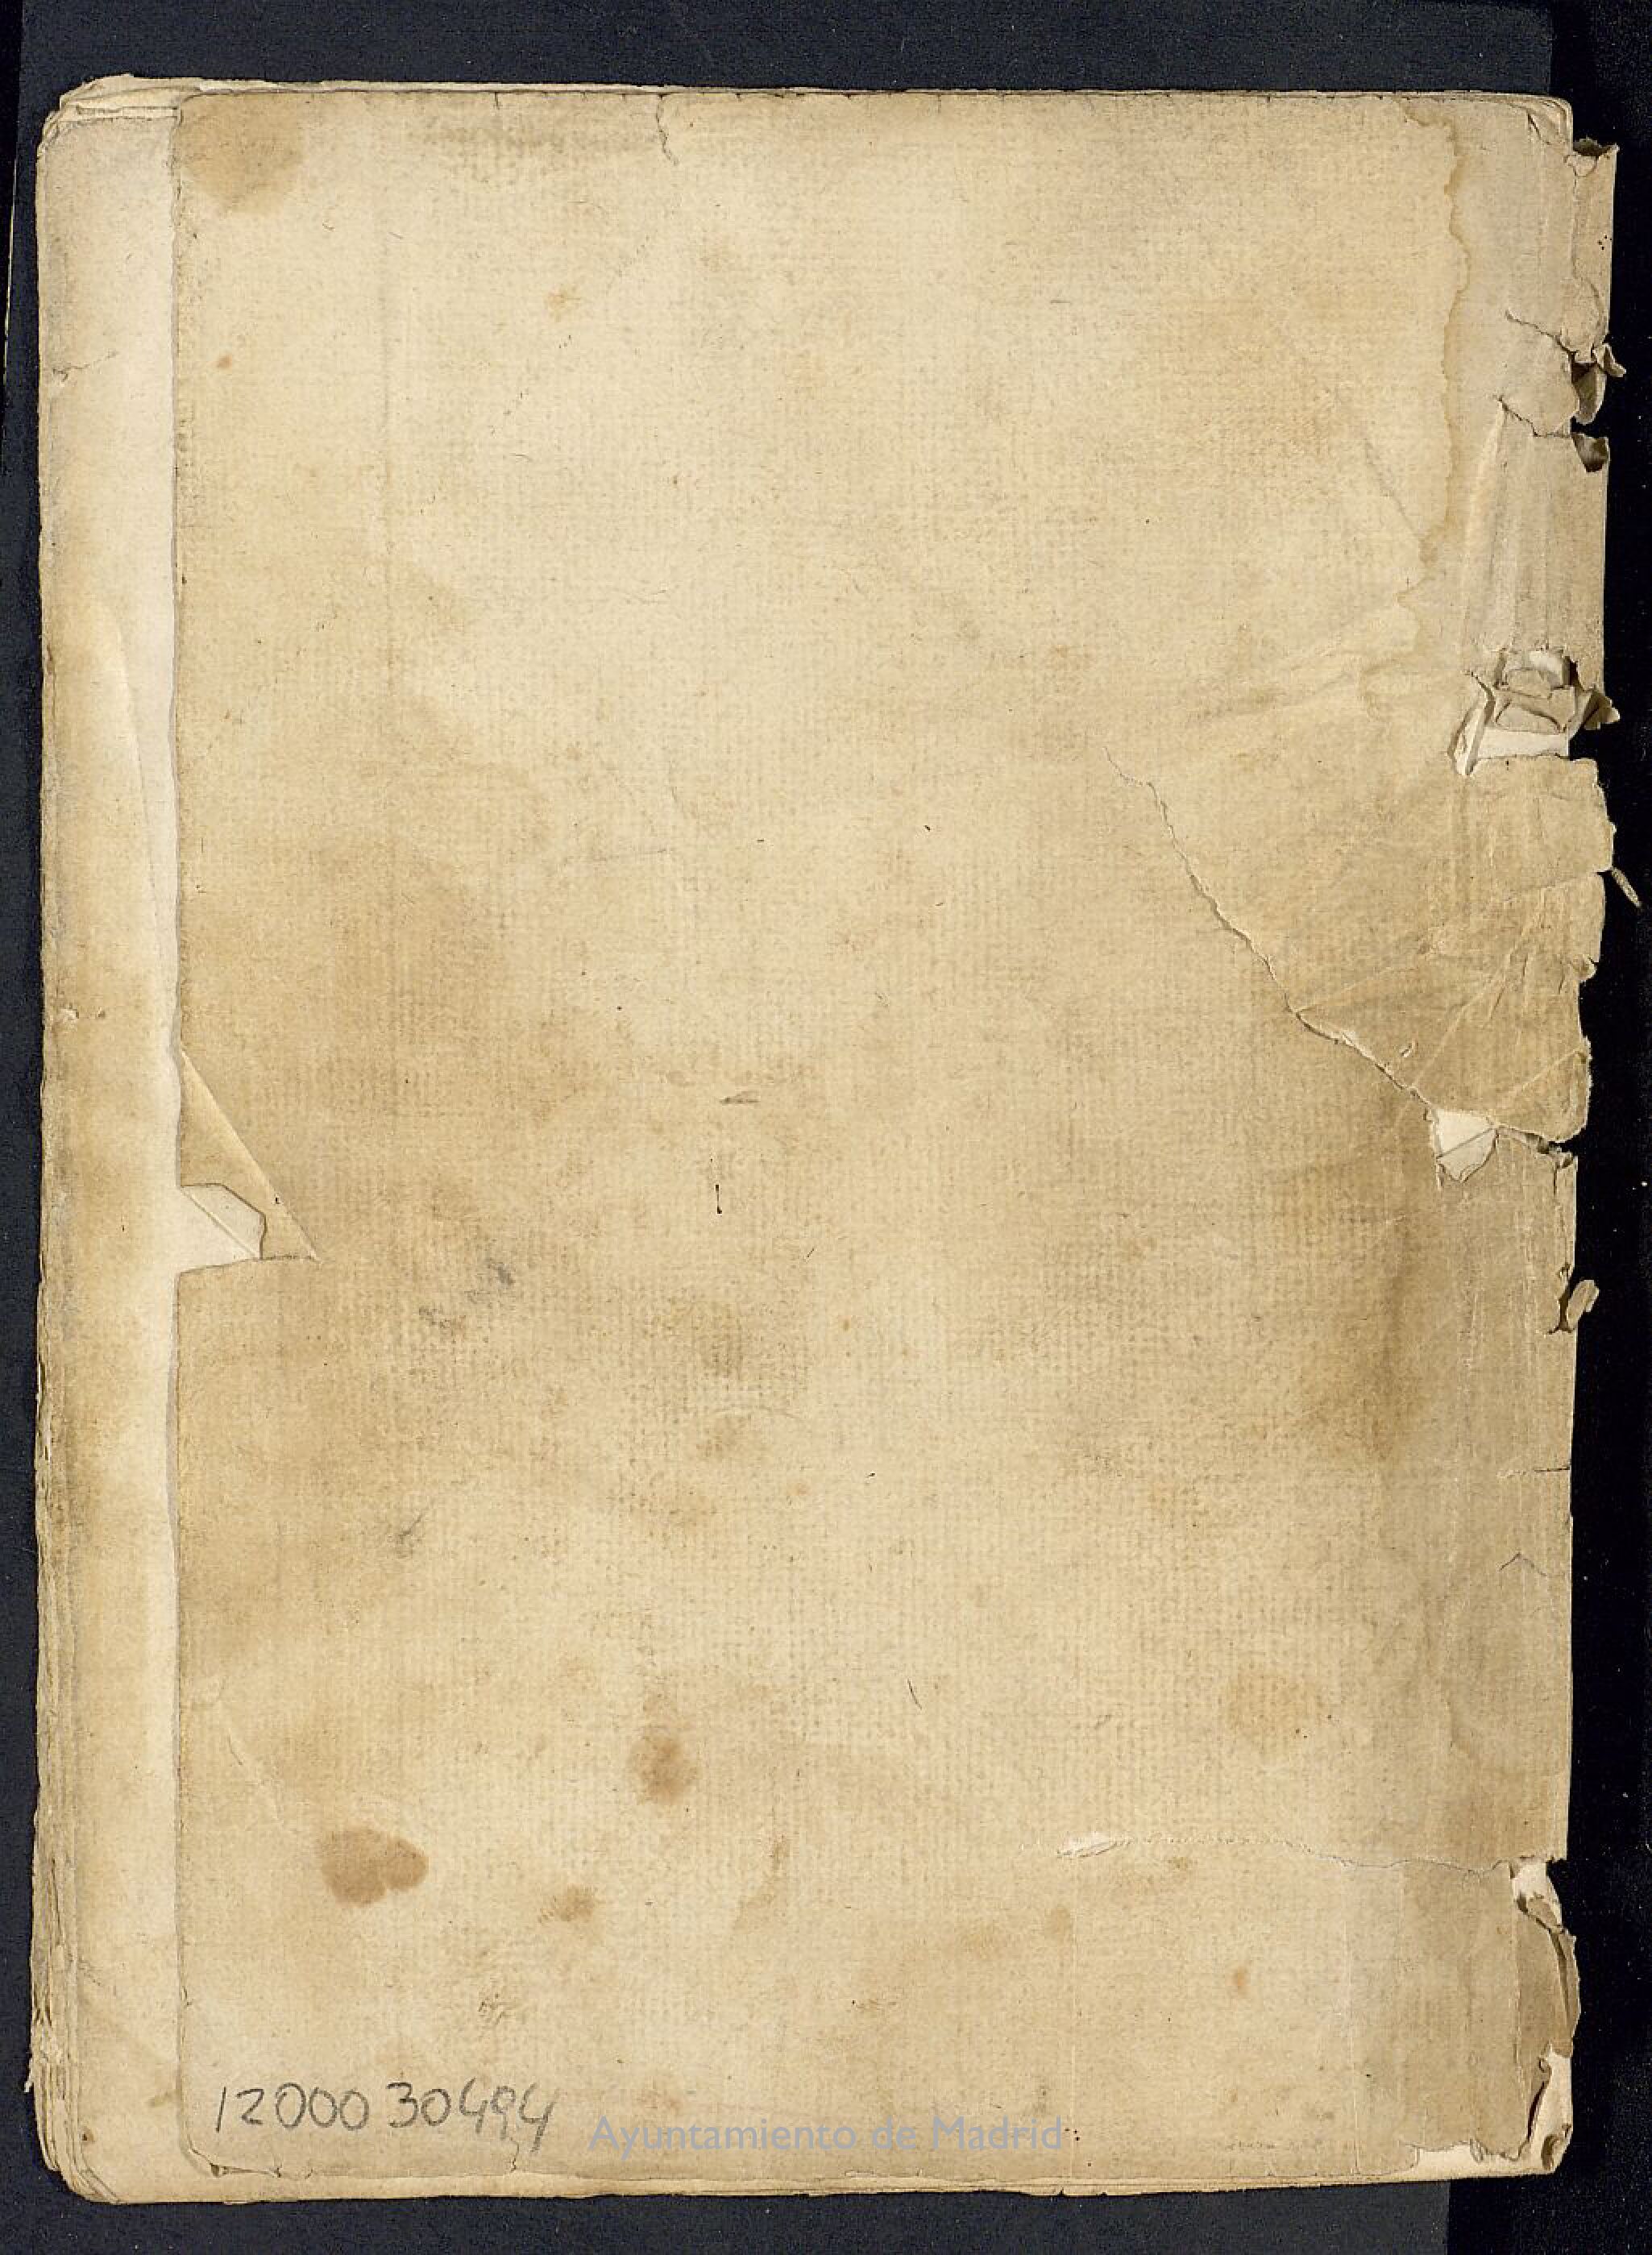 1200030494
Ayuntamiento de Madrid